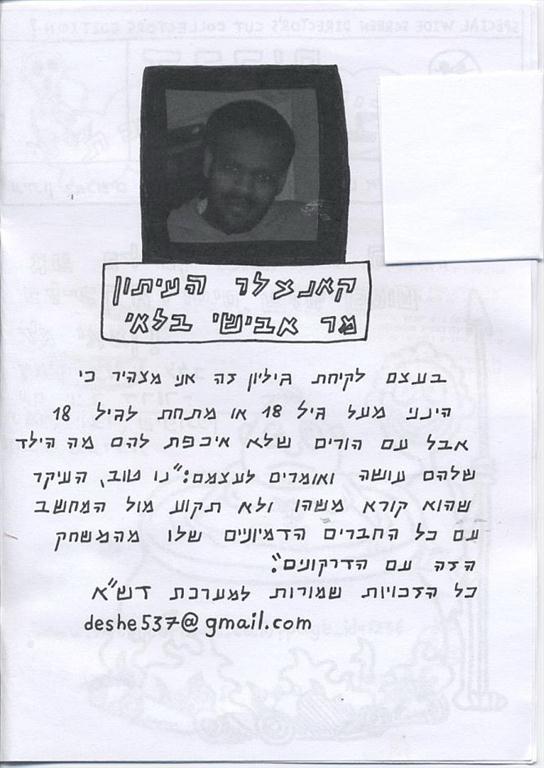 קאנצלר העיתון
מר אבישי בלאי
בעצם לקיחת גיליון זה אני מצהיר כי
הינני מעל גיל 18 או מתחת לגיל 18
אבל עם הורים שלא איכפת להם מה הילד
שלהם עושה ואומרים לעצמם:"נו טוב, העיקר
שהוא קורא משהו ולא תקוע מול המחשב
עם כל החברים הדמיונים שלו מהמשחק
הזה עם הדרקונים".
כל הזכויות שמורות למערכת דש"א
deshe537@gmail.com
SPECIAL WIDE SCREEN DIRECTOR'S CUT COLLECTORS EDITION